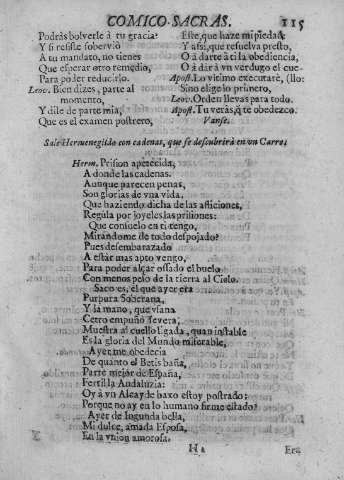 COMICO-SACRAS. 115
Podràs bolverle à tu gracia?
Y si resiste sobervio
A tu mandato, no tienes
Que esperar otro remedio,
Para poder reducirlo.
Leov. Bien dizes, parte al
momento,
Y dile de parte mia,
Que es el examen postrero,
Este, que haze mi piedad;
Y assi, que resuelva presto,
O à darte à ti la obediencia,
O à dàr à vn verdugo el cue-
Apost. Lo vltimo executarè, (llo:
Sino elige lo primero,
Leov. Orden llevas para todo.
Apost. Tu veràs, q̃ te obedezco.
Vanse.
Sale Hermenegildo con cadenas, que se descubrirà en vn Carro;
Herm. Prision apetecida,
A donde las cadenas,
Aunque parecen penas,
Son glorias de vna vida,
Que haziendo dicha de las afliciones,
Regula por joyeles las prisiones:
Que consuelo en ti tengo,
Mirandome de todo despojado?
Pues desembarazado
A estàr mas apto vengo,
Para poder alçar ossado el buelo
Con menos pelo de la tierra al Cielo.
Saco es, el que ayer era
Purpura Soberana,
Y la mano, que vfana
Cetro empuño severa,
Muestra al cuello ligada, quan instable
Es la gloria del Mundo miserable,
Ayer me obedecia
De quanto el Betis baña,
Parte mejor de España,
Fertil la Andaluzia:
Oy à vn Alcayde baxo estoy postrado;
Porque no ay en lo humano firme estado?
Ayer de Ingunda bella,
Mi dulce, amada Esposa,
En la vnion amorosa,
H 2